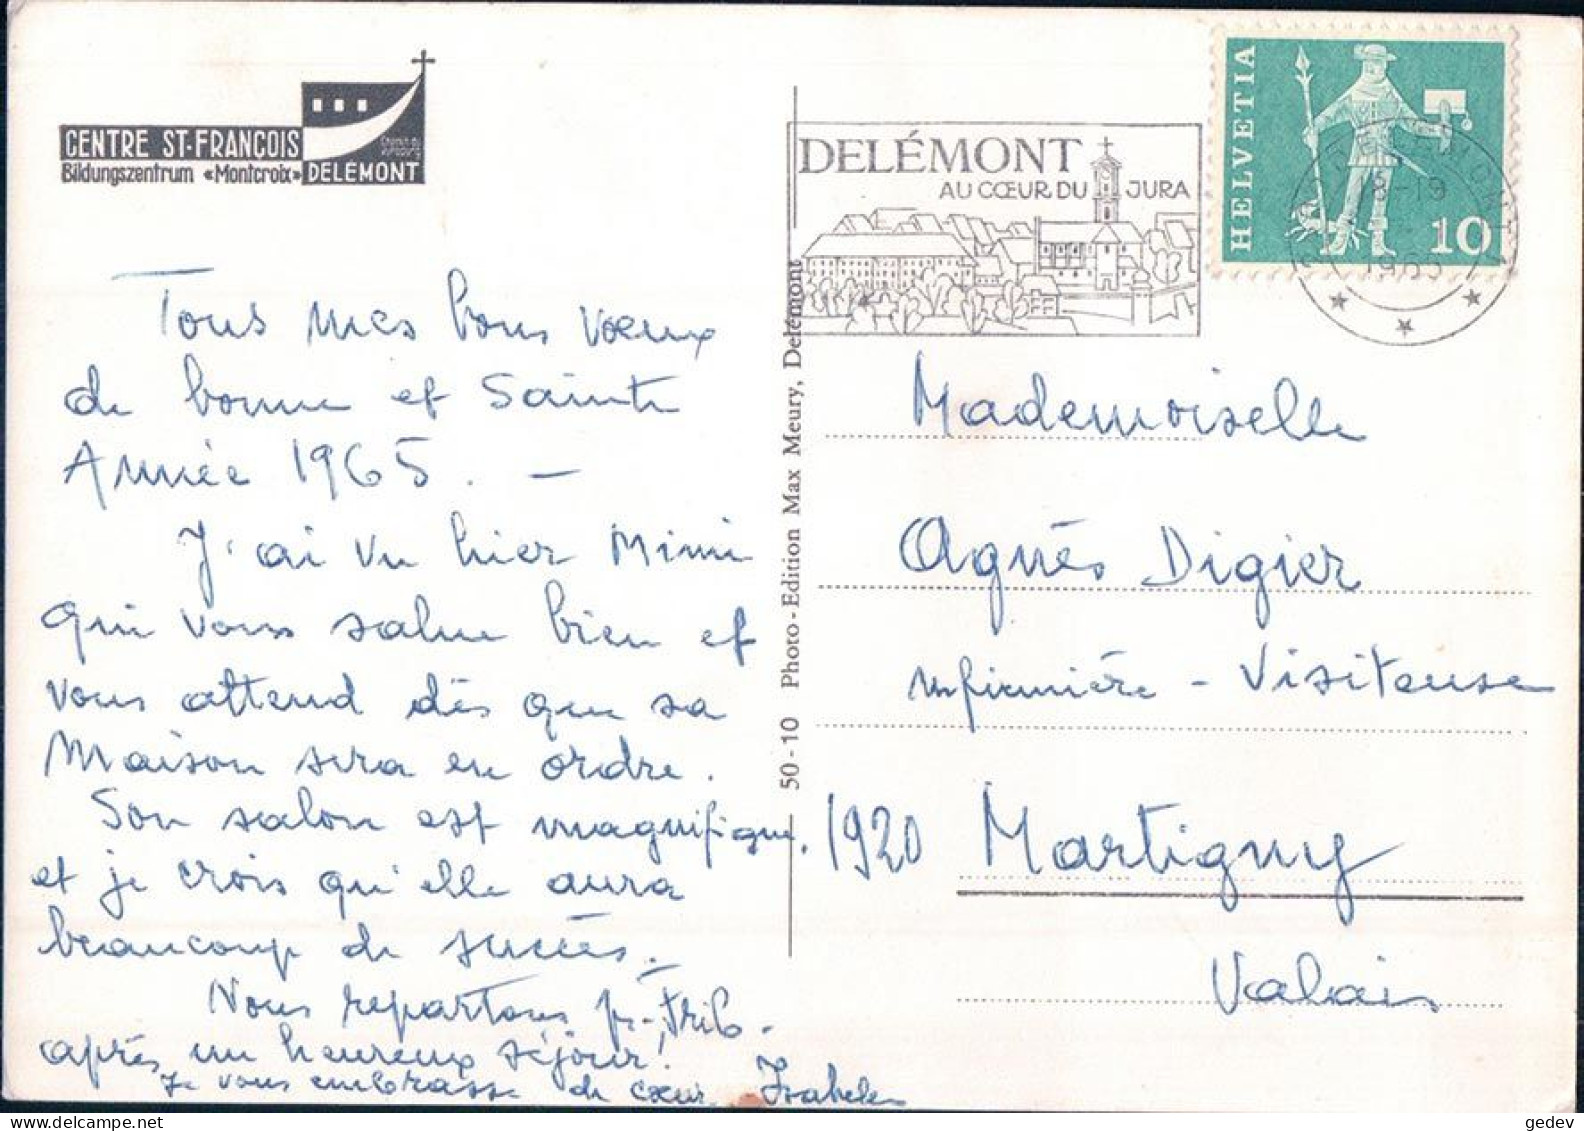 CENTRE ST-FRANÇOIS
Bildungszentrum «Montcroix» DELÉMONT
DELÉMONT
AU CŒUR DU JURA
HELVETIA
10
-19
1965
Tous mes bons voeux
de bonne et Sainte
Année 1965. -
J'ai vu hier Mimi
qui vous salue bien et
vous attend dès que sa
maison sera en ordre.
Son salon est magnifique,
et je crois qu'elle aura
beaucoup de succès. -
Nous repartons pr. Frib.
après un heureux séjour!
Je vous embrasse de cœur. Isabelle
50 - 10 Photo - Edition Max Meury, Delémont
Mademoiselle
Agnès Digier
infirmière - Visiteuse
1920 Martigny
Valais
gedev